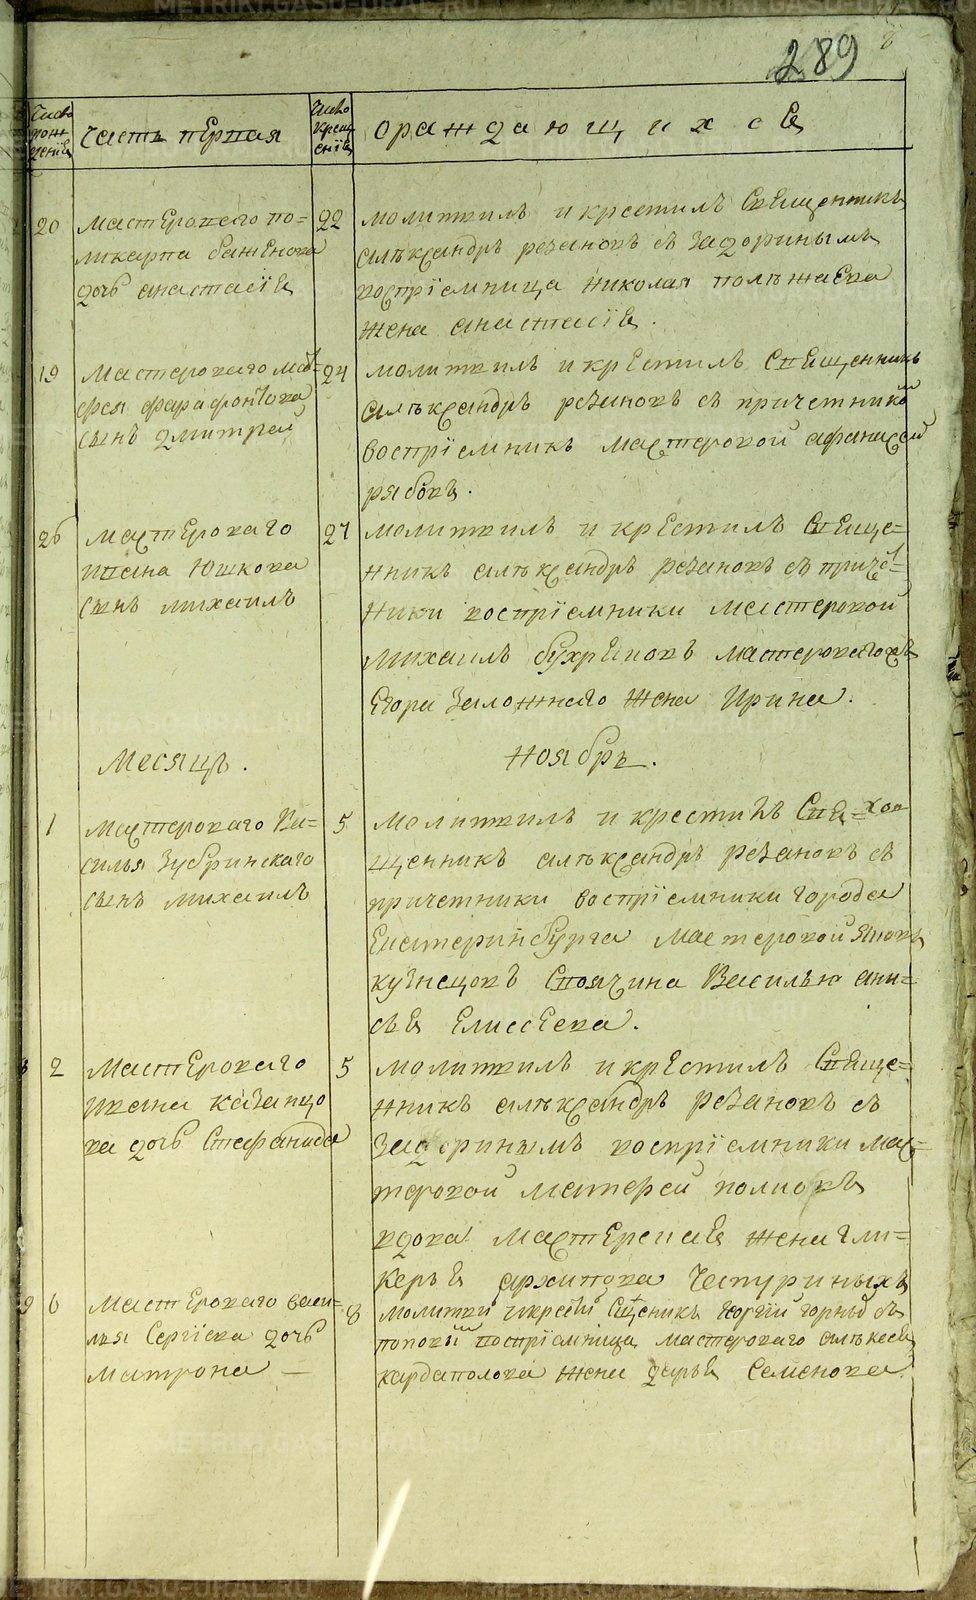 289
Число рождения
Часть первая
Число крещения
о раждающихся
20
мастероваго по=
ликарпа баженова
дочь анастасія
22
молитвилъ и крестилъ Священникъ
алѣксандръ резановъ съ Задоринымъ
воспріемница Николая полѣжаева
жена анастасія.
19
мастероваго мат=
фея фарафонтова
сынъ дмитрей
24
молитвилъ и крѣстилъ Священникъ
алѣксандръ резановъ съ причетники
воспріемникъ мастеровой афанасей
рябовъ.
26
мастероваго
ивана Юшкова
сынъ михаилъ
27
молитвилъ и крестилъ Свяще=
нникъ алѣксандръ резановъ съ приче=
тники воспріемники мастеровой
михаилъ бухряковъ мастероваго
Егора Заложнаго жена Ирина.
Месяцъ.
Ноябръ.
1
мастероваго Ва=
силья Зубринскаго
сынъ михаилъ
5
молитвилъ и крестилъ Свя=
щенникъ алѣксандръ резановъ съ
причетники воспріемники города
Екатеринбурга мастеровой яковъ
кузнецовъ Василья ани=
сья Елисеева.
2
мастероваго
ивана казанцо
ва дочь Стефанида
5
молитвилъ и крѣстилъ Свяще=
нникъ алѣксандръ резановъ съ
Задоринымъ воспріемники мас=
теровой матфей поповъ
вдова мастерская жена гли=
керья архипова Чепуриныхъ
9
6
мастероваго васи=
лья Сергіева дочь
матрона —
8
молитви икрести Сщеникъ Георгій горныхъ съ
поповы воспріемница мастероваго алѣксея
кардаполова жена дарья Семенова
METRIKI.GASO-URAL.RU